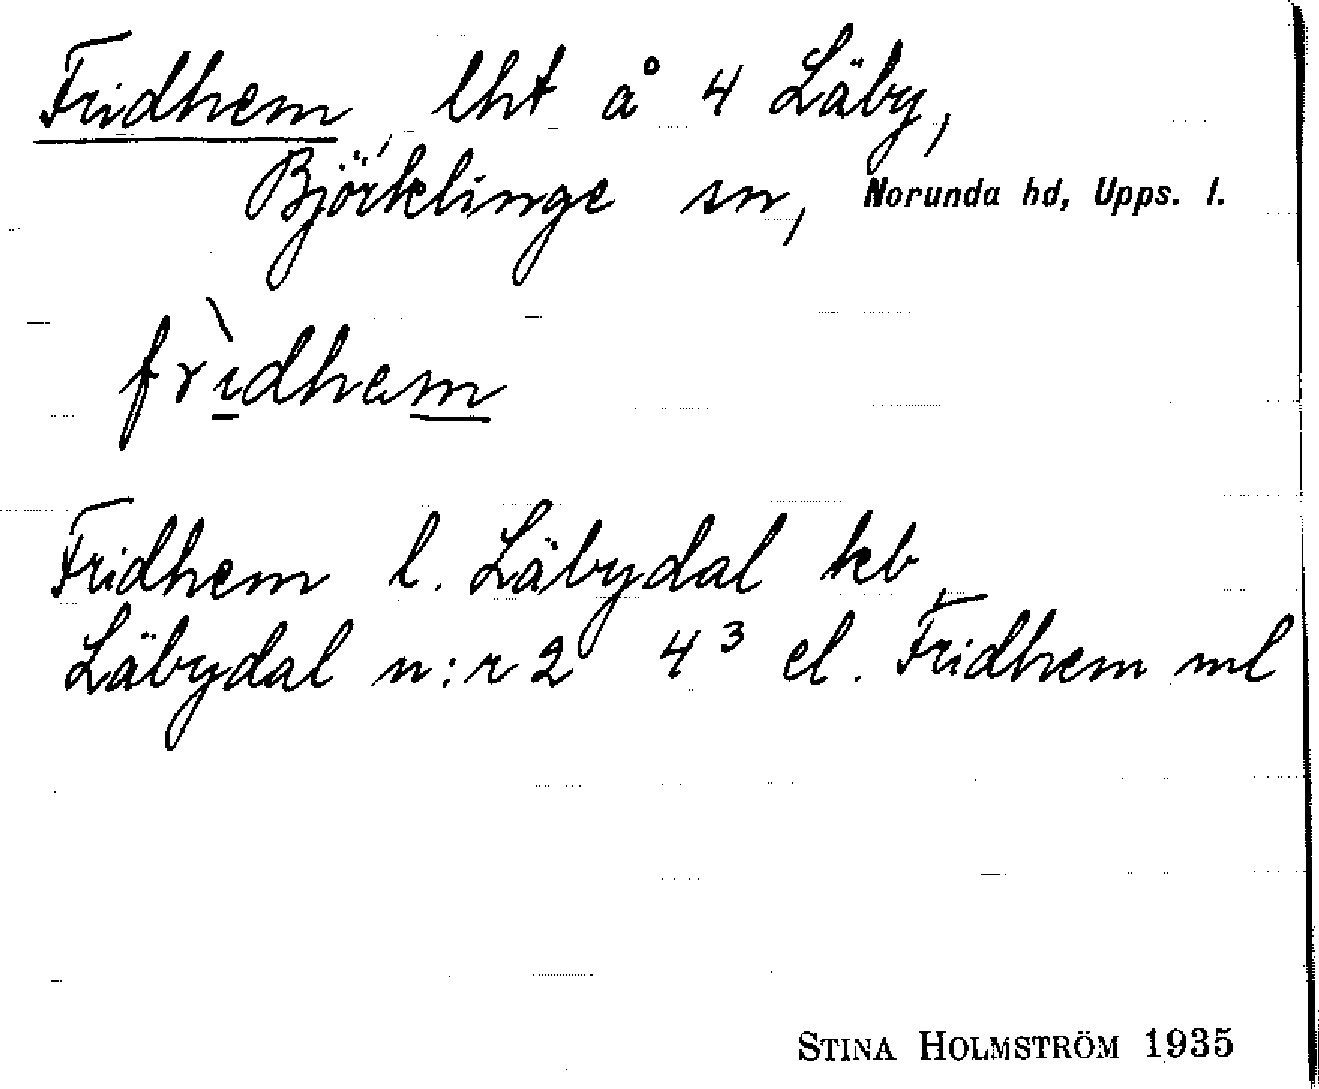 Fridhem, lht å 4 Läby,
Björklinge sn, Norunda hd, Upps. l.
frìdhem
Fridhem l. Läbydal kb
Läbydal n:r 2 4³ el. Fridhem ml
STINA HOLMSTRÖM 1935